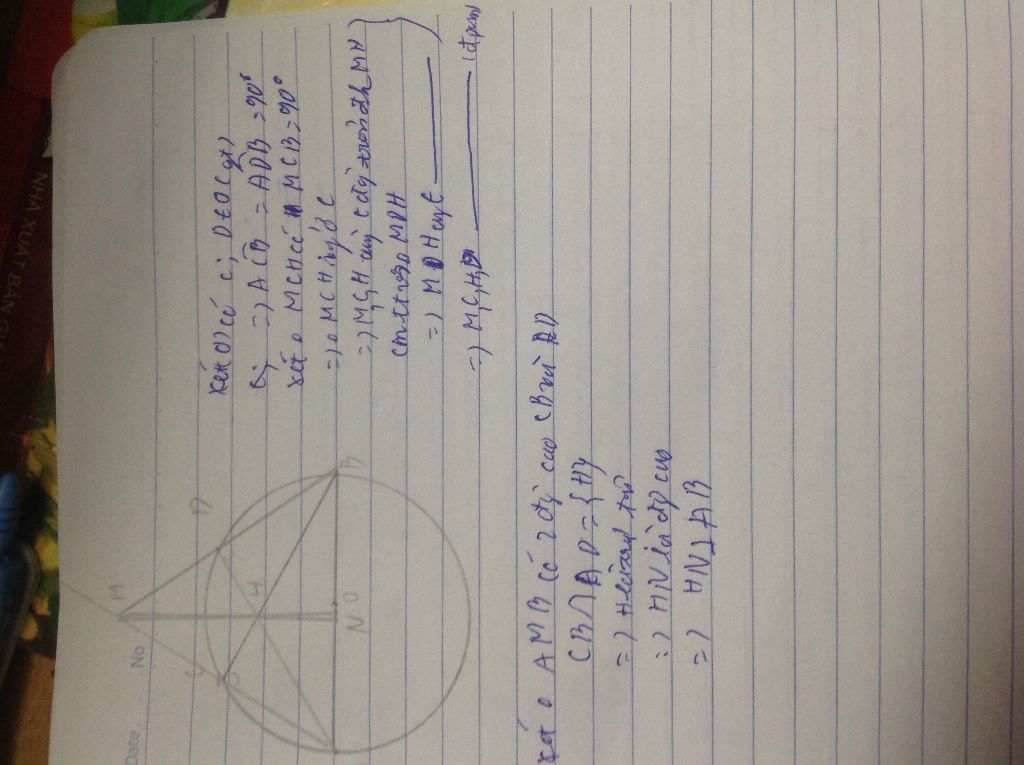 Date. No
M
C
D
H
N O
B
Xét (O) có C; D ∈ (O) (gt)
=) ACB = ADB = 90°
Xét △ MCH có MCB = 90°
=) △ MCH
=) M, C, H cùng € đtj tròn đk MH
cmtt △ MDH
=) MDH cùng €
=) M, C, H, D (đpcm)
Xét △ AMB có 2 đg cao CB và AD
CB ∩ AD = {H}
=) H là trực
=) HN là đg cao
=) HN ⊥ AB
NHÀ XUẤT BẢN